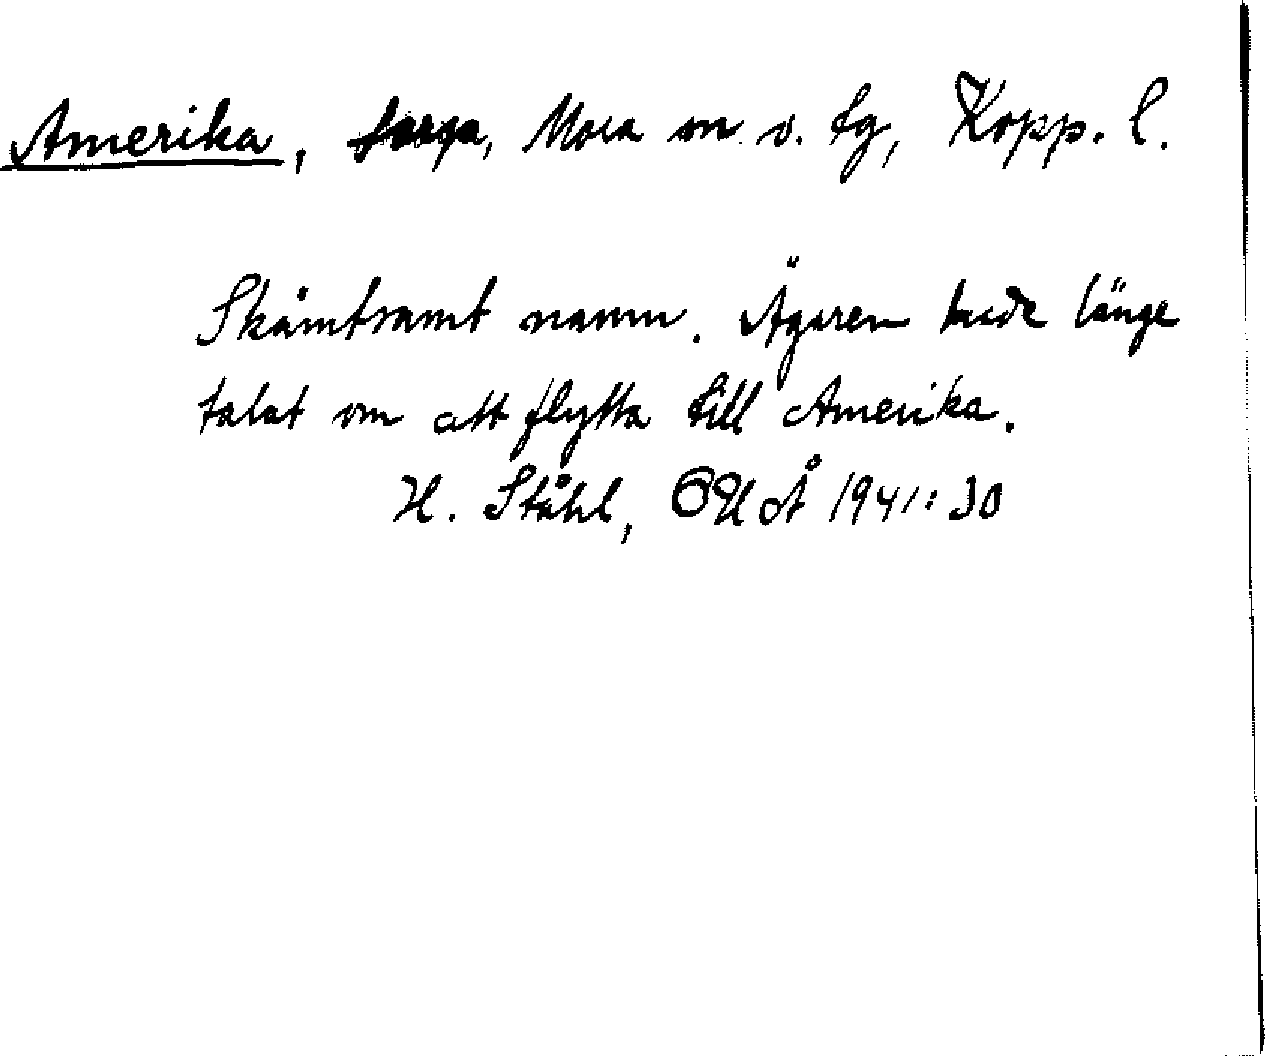 Amerika, torpa, Mora sn o. tg, Kopp. l.
Skämtsamt namn. Ägaren hade länge
talat om att flytta till Amerika.
H. Ståhl, OUÅ 1941: 30